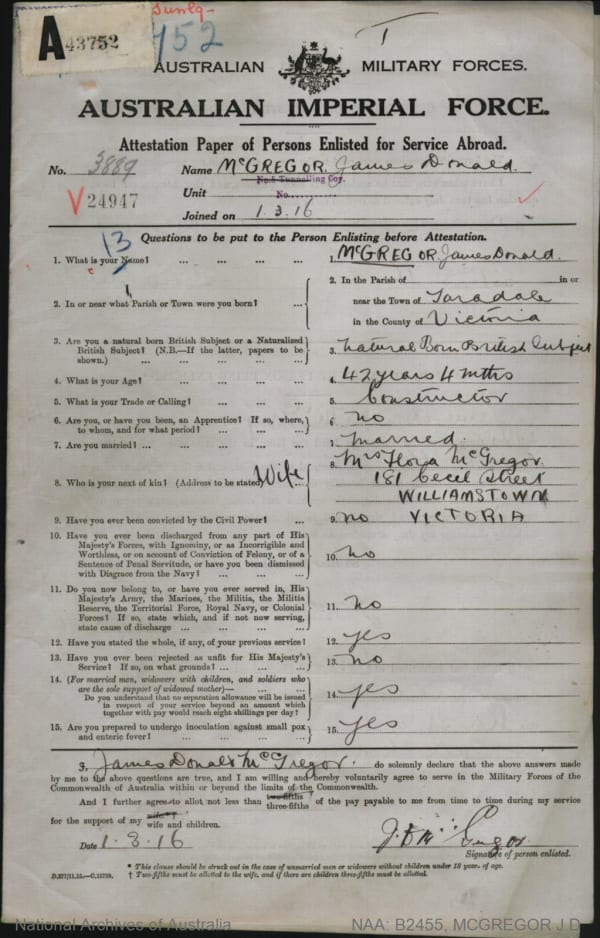 Tunlg-
A 43752
752
AUSTRALIAN MILITARY FORCES.
AUSTRALIAN IMPERIAL FORCE.
Attestation Paper of Persons Enlisted for Service Abroad.
No. 3889 Name McGREGOR James Donald.
No. 5 Tunnelling Coy.
V 24947 Unit No.
Joined on 1.3.16
13
Questions to be put to the Person Enlisting before Attestation.
1. What is your Name? ... ... ... ... 1. McGREGOR James Donald.
2. In or near what Parish or Town were you born? ... 2. In the Parish of in or
near the Town of Taradale
in the County of Victoria
3. Are you a natural born British Subject or a Naturalized
British Subject? (N.B.—If the latter, papers to be
shown.) ... ... ... ... 3. Natural Born British Subject
4. What is your Age? ... ... ... ... 4. 42 years 4 mths
5. What is your Trade or Calling? ... ... ... 5. Constructor
6. Are you, or have you been, an Apprentice? If so, where,
to whom, and for what period? ... ... ... 6. no
7. Are you married? ... ... ... ... 7. Married.
8. Who is your next of kin? (Address to be stated) Wife ... 8. Mrs Flora McGregor.
181 Cecil Street
WILLIAMSTOWN
VICTORIA
9. Have you ever been convicted by the Civil Power? ... 9. no
10. Have you ever been discharged from any part of His
Majesty's Forces, with Ignominy, or as Incorrigible and
Worthless, or on account of Conviction of Felony, or of a
Sentence of Penal Servitude, or have you been dismissed
with Disgrace from the Navy? ... ... ... 10. no
11. Do you now belong to, or have you ever served in, His
Majesty's Army, the Marines, the Militia, the Militia
Reserve, the Territorial Force, Royal Navy, or Colonial
Forces? If so, state which, and if not now serving,
state cause of discharge ... ... ... ... 11. No
12. Have you stated the whole, if any, of your previous service? 12. yes
13. Have you ever been rejected as unfit for His Majesty's
Service? If so, on what grounds? ... ... ... 13. no
14. (For married men, widowers with children, and soldiers who
are the sole support of widowed mother)— ... ...
Do you understand that no separation allowance will be issued
in respect of your service beyond an amount which
together with pay would reach eight shillings per day? ... 14. yes
15. Are you prepared to undergo inoculation against small pox
and enteric fever? ... ... ... ... 15. yes
I, James Donald McGregor. do solemnly declare that the above answers made
by me to the above questions are true, and I am willing and hereby voluntarily agree to serve in the Military Forces of the
Commonwealth of Australia within or beyond the limits of the Commonwealth.
And I further agree to allot not less than two-fifths three-fifths of the pay payable to me from time to time during my service
for the support of my wife wife and children.
Date 1.3.16 J. D. McGregor
Signature of person enlisted.
* This clause should be struck out in the case of unmarried men or widowers without children under 18 years of age.
† Two-fifths must be allotted to the wife, and if there are children three-fifths must be allotted.
National Archives of Australia NAA: B2455, MCGREGOR J D